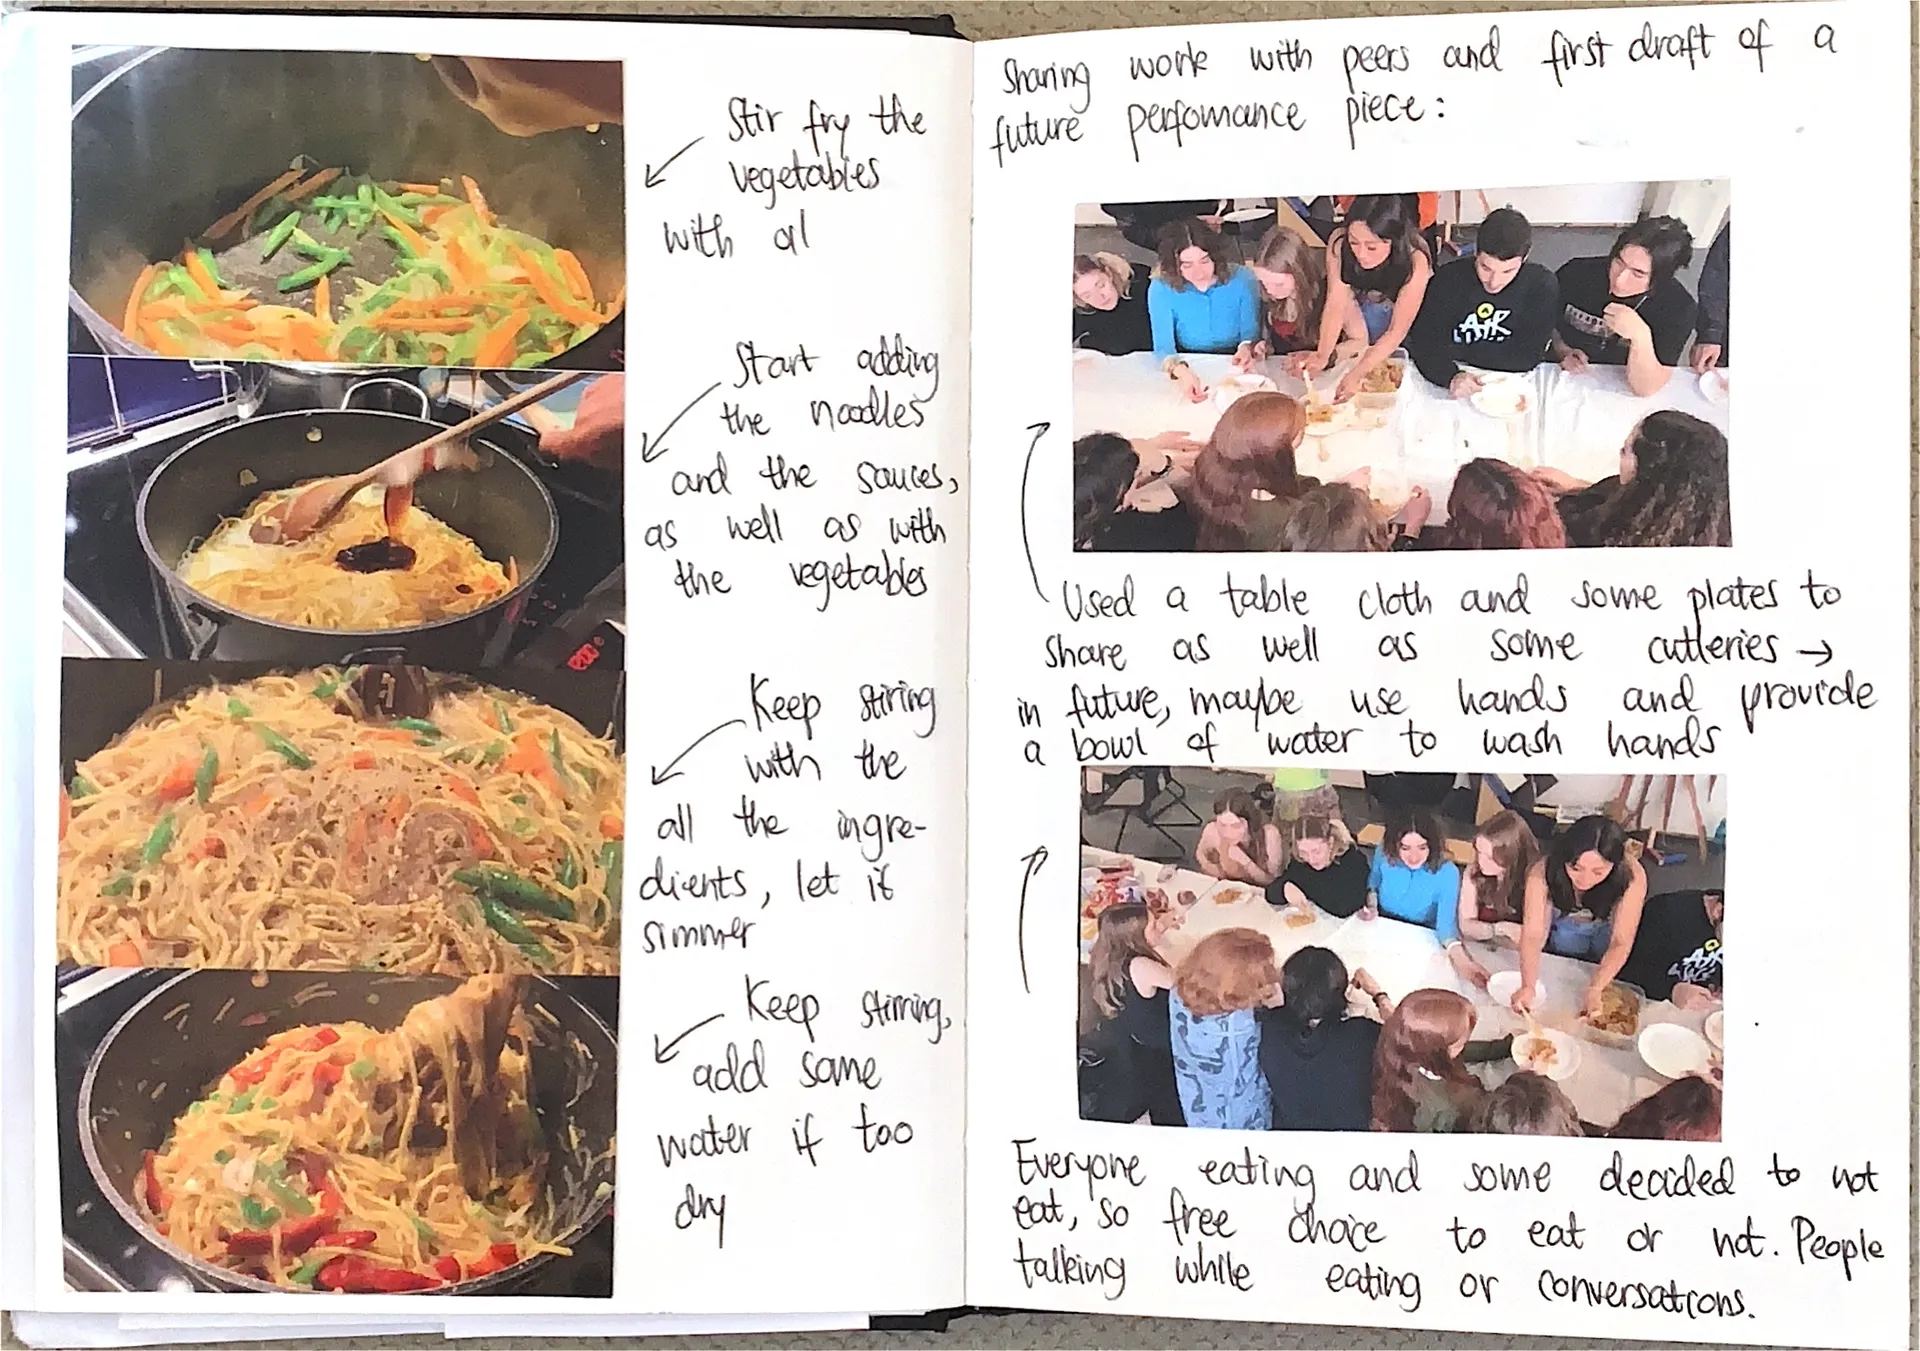 Stir fry the
vegetables
with al
Start adding
the noodles
and the sauces,
as well as with
the vegetables
Keep stiring
with the
all the ingre-
dients, let it
simmer
Keep stirring,
add some
water if too
dry
Sharing work with peers and first draft of a
future perfomance piece:
AIR
Used a table cloth and some plates to
share as well as some cutleries →
in future, maybe use hands and provide
a bowl of water to wash hands
AIR
Everyone eating and some decided to not
eat, so free choice to eat or not. People
talking while eating or conversations.